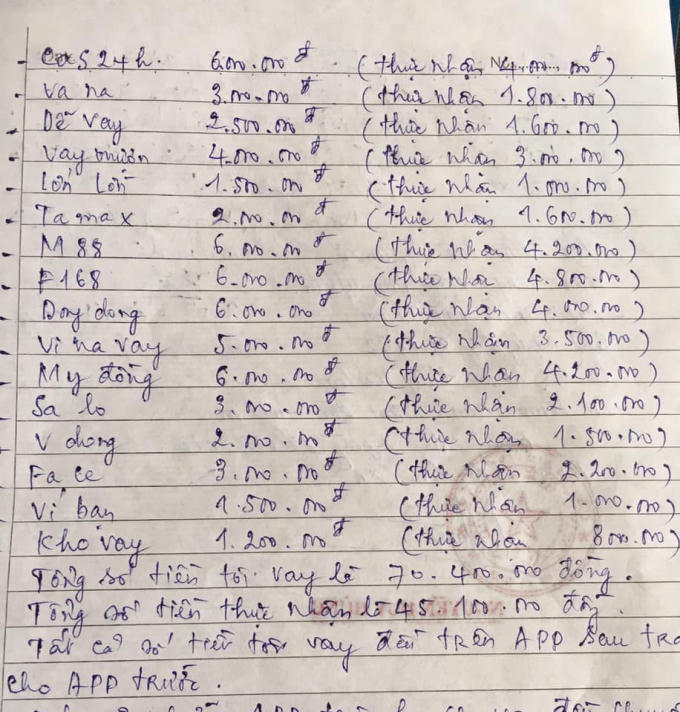 - Cas 24h. 6.000.000đ (thực nhận 4.000.000đ)
- Va na 3.000.000đ (thực nhận 1.800.000)
- Dễ vay 2.500.000đ (thực nhận 1.600.000)
- Vay mượn 4.000.000đ (thực nhận 3.000.000)
- lồn lồn 1.500.000đ (thực nhận 1.000.000)
- Ta ma x 2.000.000đ (thực nhận 1.600.000)
- M 88 6.000.000đ (thực nhận 4.200.000)
- F168 6.000.000đ (thực nhận 4.800.000)
- Dong dong 6.000.000đ (thực nhận 4.000.000)
- Vi na vay 5.000.000đ (thực nhận 3.500.000)
- My đồng 6.000.000đ (thực nhận 4.200.000)
- Sa lo 3.000.000đ (thực nhận 2.100.000)
V dong 2.000.000đ (thực nhận 1.500.000)
Fa ce 3.000.000đ (thực nhận 2.200.000)
Ví bạn 1.500.000đ (thực nhận 1.000.000)
Kho vay 1.200.000đ (thực nhận 800.000)
Tổng số tiền tôi vay là 70.400.000 đồng.
Tổng số tiền thực nhận là 45.100.000 đồng.
Tất cả số tiền tôi vay đều trên APP sau trả
cho APP trước.